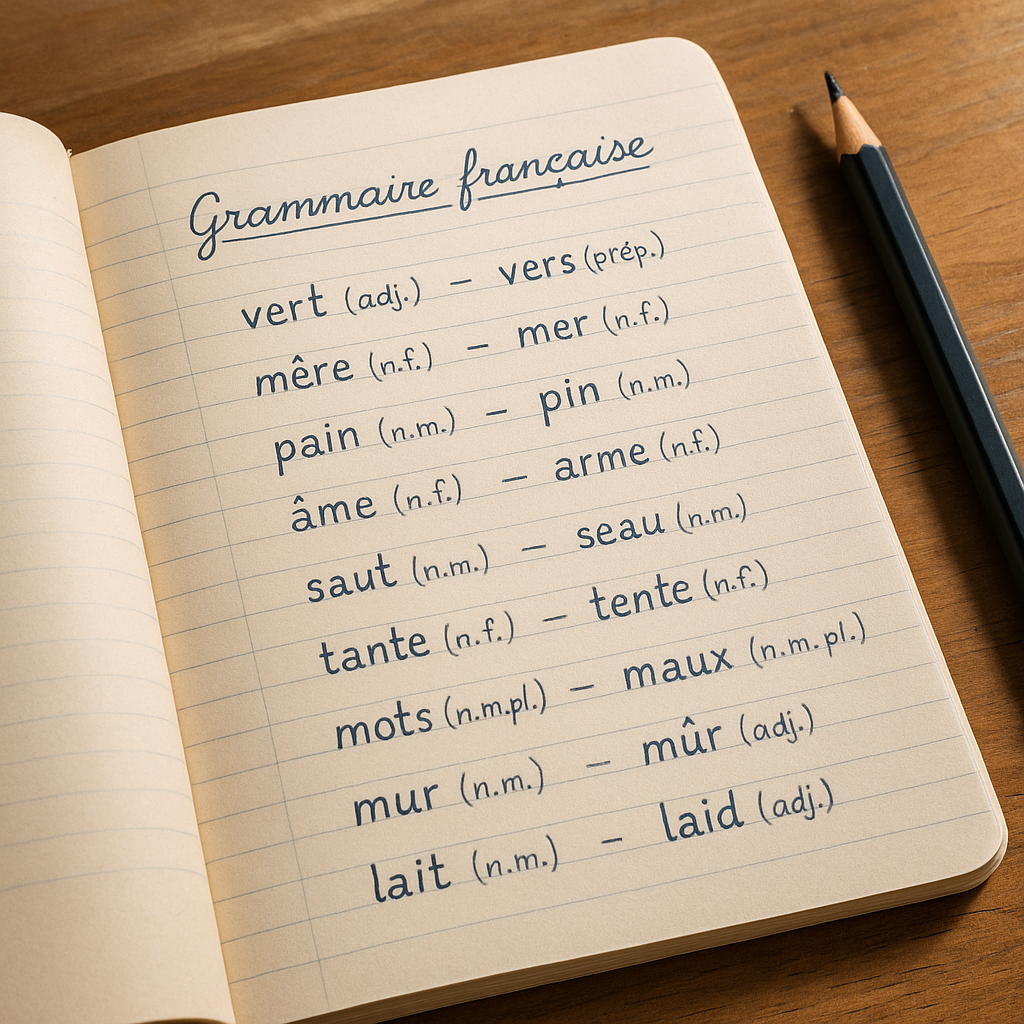 Grammaire française
vert (adj.) – vers (prép.)
mêre (n.f.) – mer (n.f.)
pain (n.m.) – pin (n.m.)
âme (n.f.) – arme (n.f.)
saut (n.m.) – seau (n.m.)
tante (n.f.) – tente (n.f.)
mots (n.m.pl.) – maux (n.m.pl.)
mur (n.m.) – mûr (adj.)
lait (n.m.) – laid (adj.)